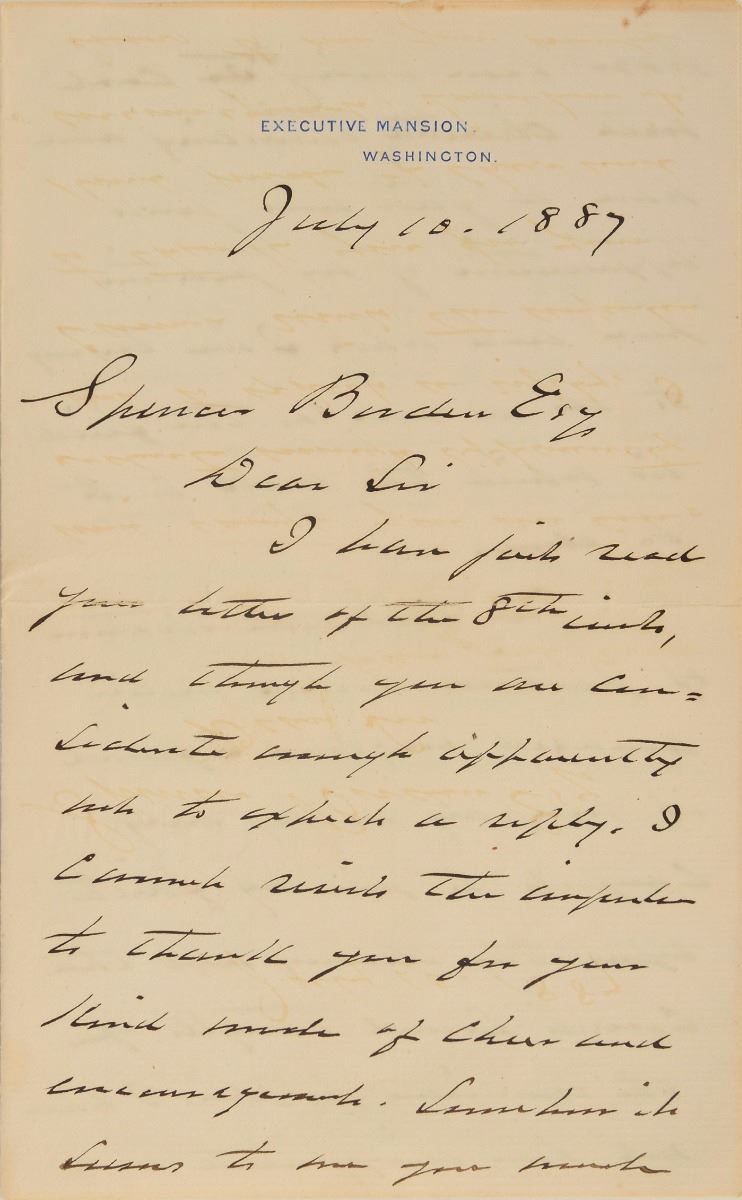 EXECUTIVE MANSION.
WASHINGTON.
July 10. 1887
Spencer Borden Esq
Dear Sir
I have just read
your letter of the 8th inst,
and though you are con=
siderate enough apparently
not to expect a reply. I
cannot resist the impulse
to thank you for your
kind words of cheer and
encouragement. Somehow it
seems to me your words